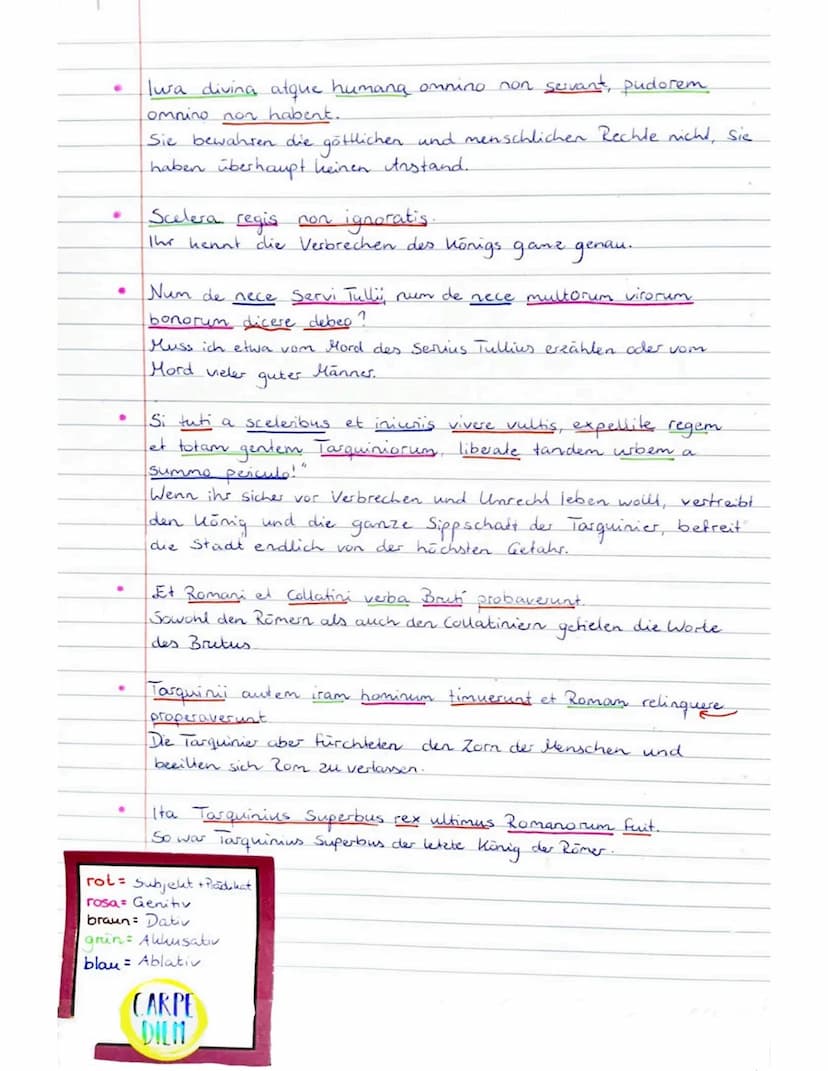 Iura divina atque humana omnino non servant, pudorem
omnino non habent.
Sie bewahren die göttlichen und menschlichen Rechte nicht, sie
haben überhaupt keinen Anstand.
Scelera regis non ignoratis.
Ihr kennt die Verbrechen des Königs ganz genau.
Num de nece Servi Tullii, num de nece multorum virorum
bonorum dicere debeo?
Muss ich etwa vom Mord des Servius Tullius erzählen oder vom
Mord vieler guter Männer.
Si tuti a sceleribus et iniuriis vivere vultis, expellite regem
et totam gentem Tarquiniorum, liberate tandem urbem a
summo periculo!"
Wenn ihr sicher vor Verbrechen und Unrecht leben wollt, vertreibt
den König und die ganze Sippschaft der Tarquinier, befreit
die Stadt endlich von der höchsten Gefahr.
Et Romani et Collatini verba Bruti probaverunt.
Sowohl den Römern als auch den Collatiniern gefielen die Worte
des Brutus
Tarquinii autem iram hominum timuerunt et Romam relinquere
properaverunt
Die Tarquinier aber fürchteten den Zorn der Menschen und
beeilten sich Rom zu verlassen.
Ita Tarquinius Superbus rex ultimus Romanorum fuit.
So war Tarquinius Superbus der letzte König der Römer.
rot = Subjekt + Prädikat
rosa = Genitiv
braun = Dativ
grün = Akkusativ
blau = Ablativ
CARPE
DIEM